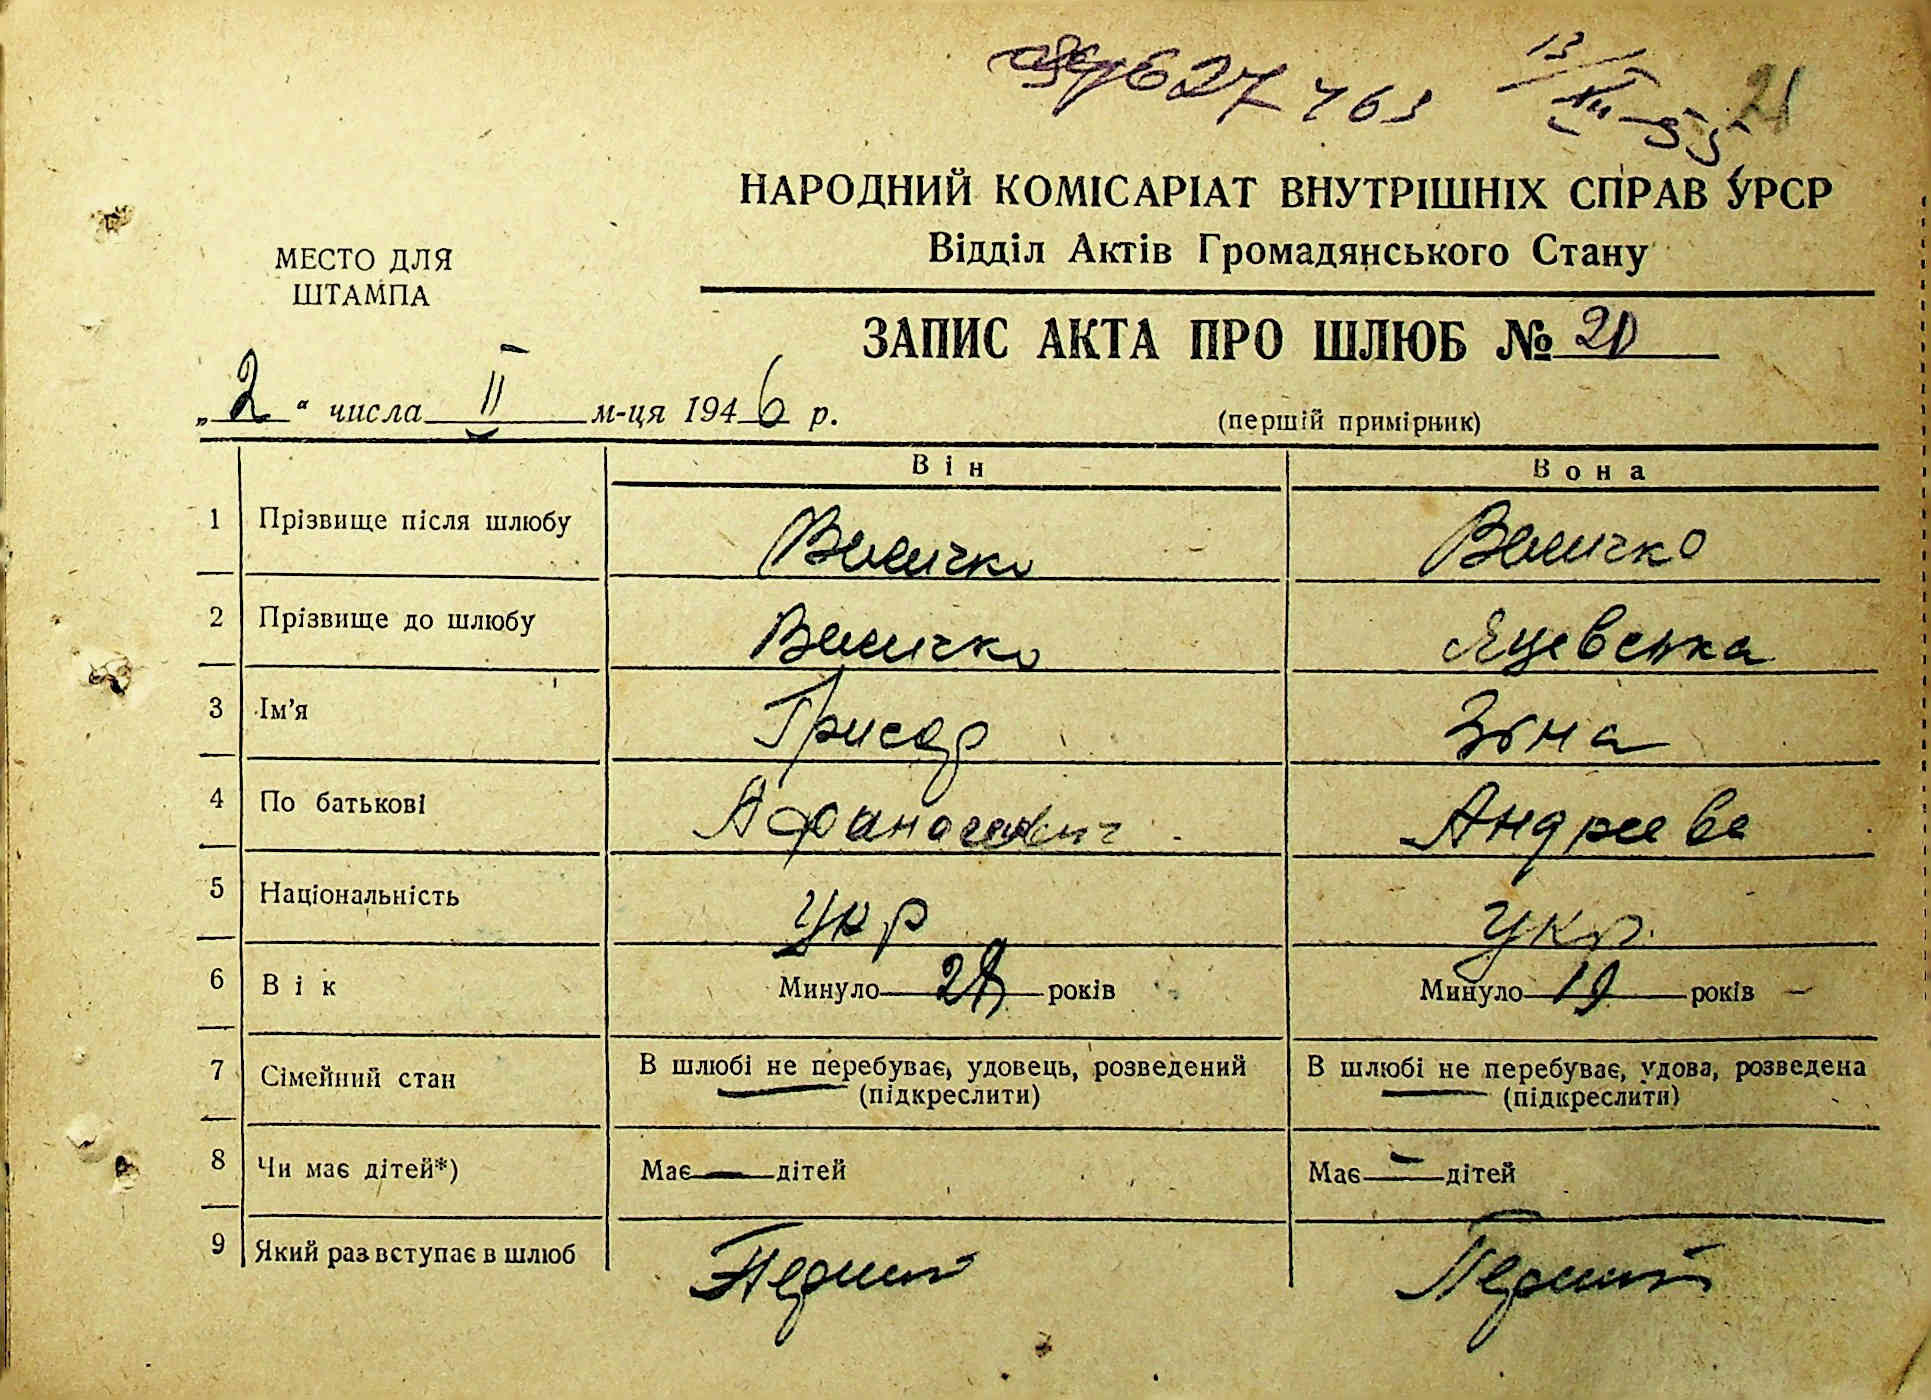 627763 13/XII-55 21
НАРОДНИЙ КОМІСАРІАТ ВНУТРІШНІХ СПРАВ УРСР
Відділ Актів Громадянського Стану
МЕСТО ДЛЯ
ШТАМПА
ЗАПИС АКТА ПРО ШЛЮБ № 20
„2“ числа II м-ця 1946 р.
(першій примірник)
Він Вона
1 Прізвище після шлюбу Величко Величко
2 Прізвище до шлюбу Величко Яцевська
3 Ім'я Грисор Зіна
4 По батькові Афанасевич Андреева
5 Національність Укр Укр.
6 Вік Минуло років Минуло 19 років
7 Сімейний стан В шлюбі не перебуває, удовець, розведений В шлюбі не перебуває, удова, розведена
(підкреслити) (підкреслити)
8 Чи має дітей*) Має — дітей Має — дітей
9 Який раз вступає в шлюб Первий Первий